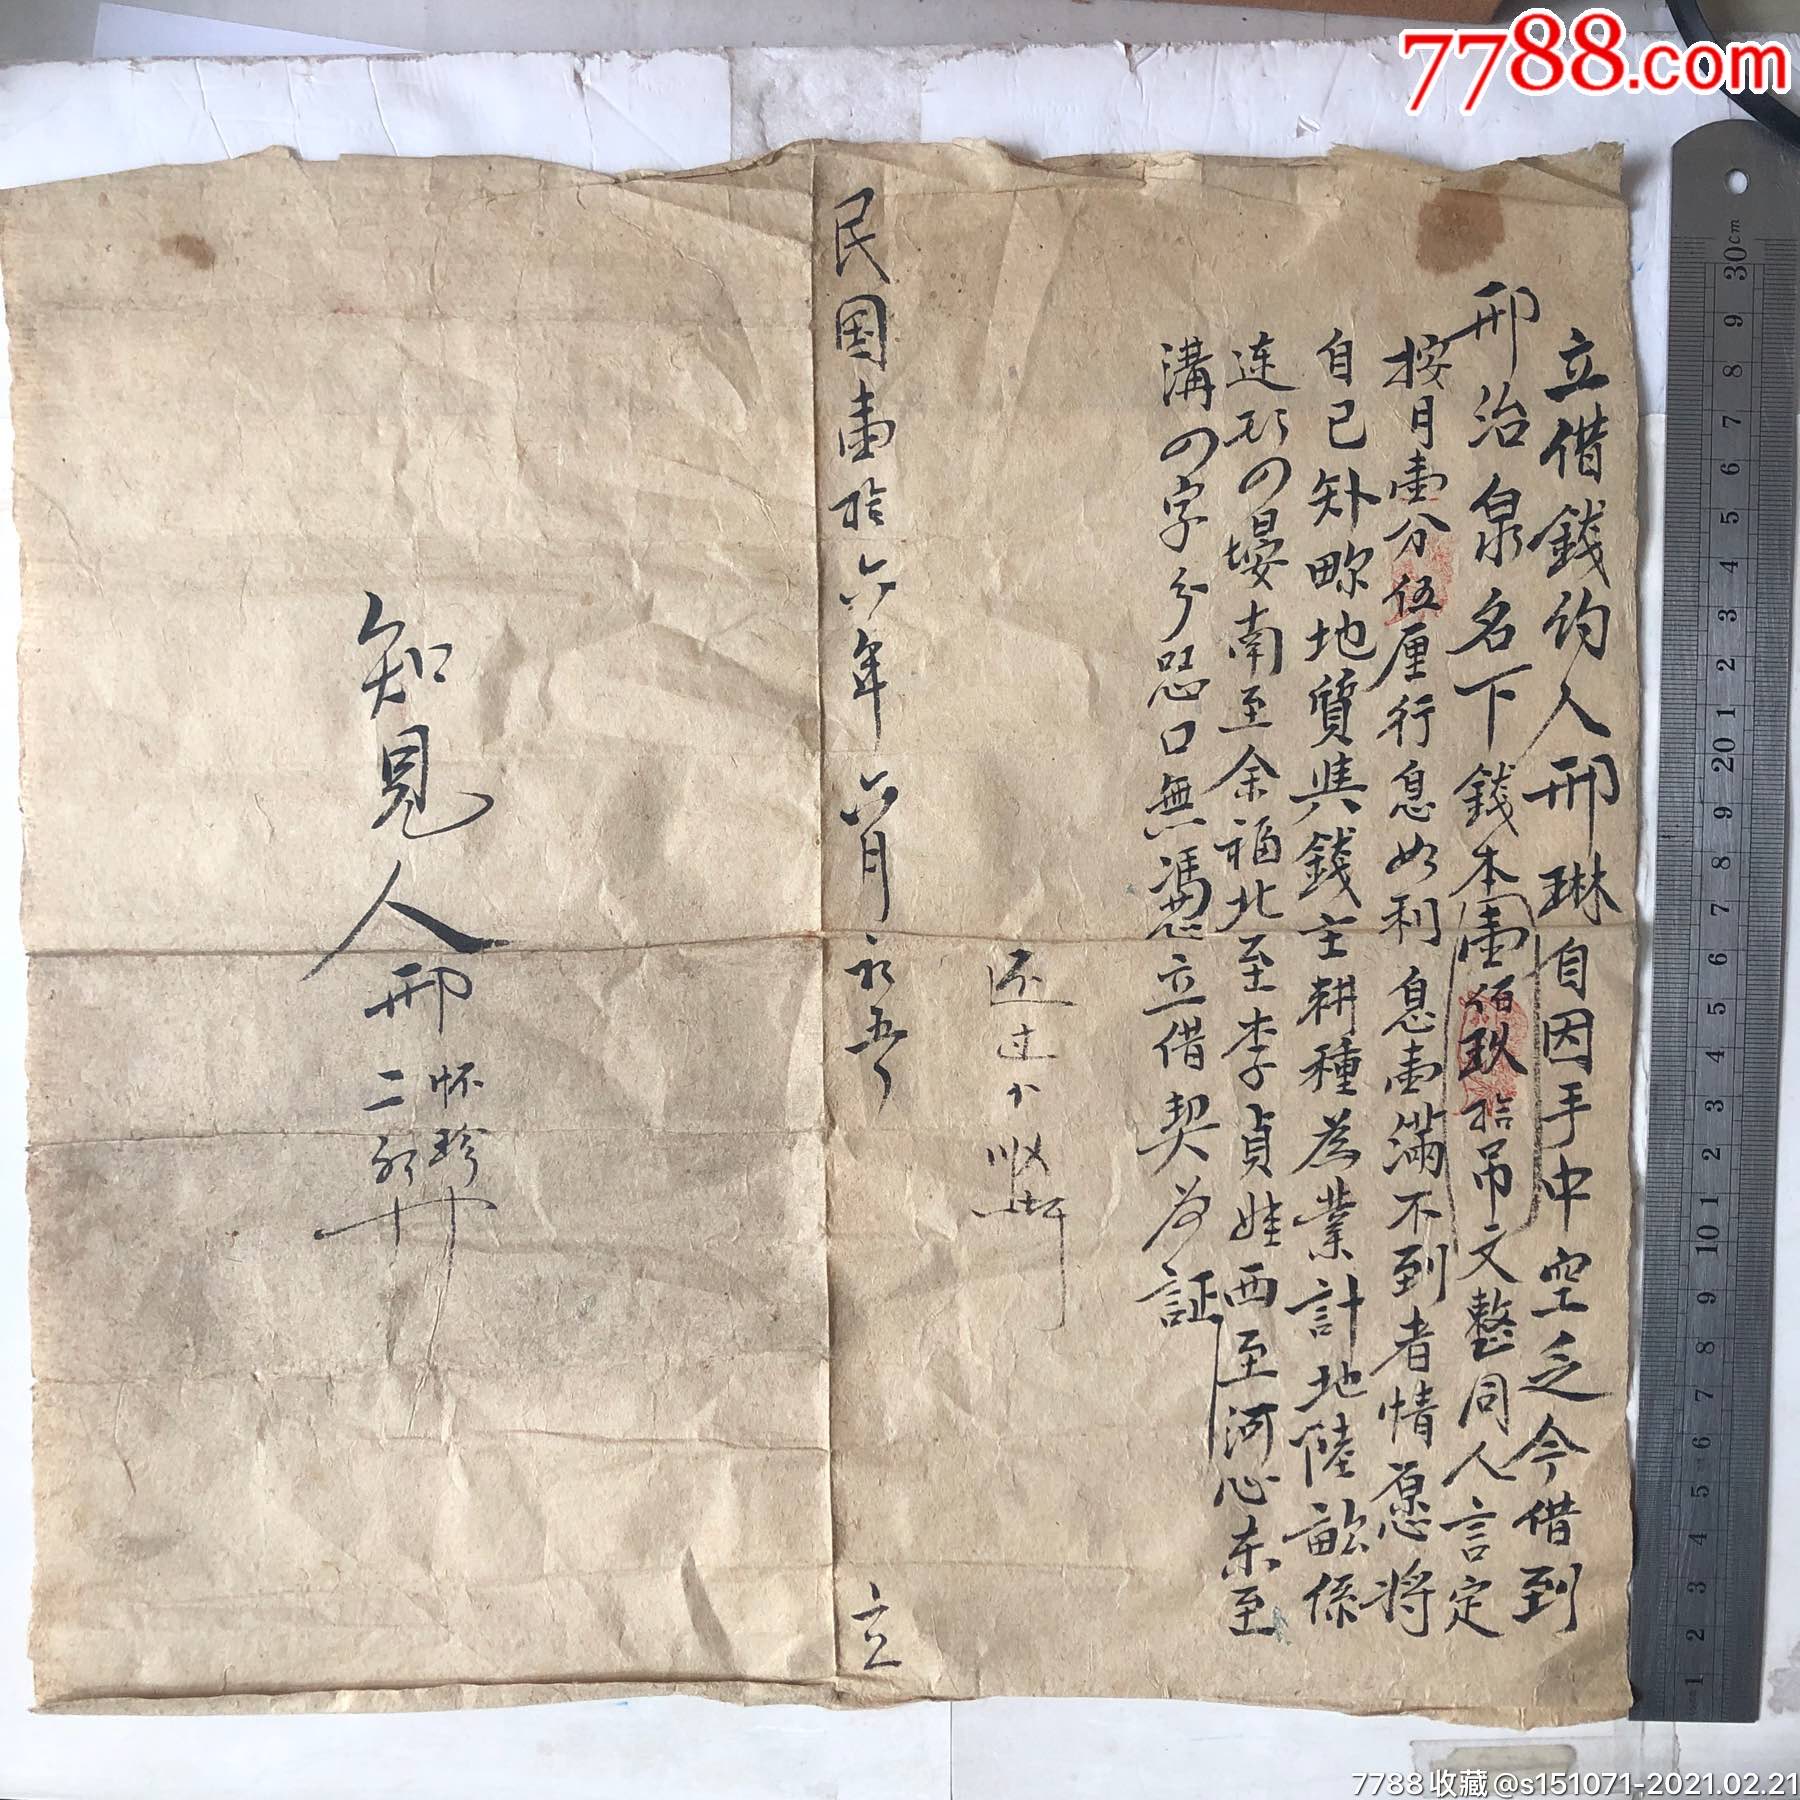 7788.com
立借錢约人邢琳自因手中空乏今借到
邢治泉名下錢本壷佰玖拾吊文整同人言定
按月壷分伍厘行息如利息壷滿不到者情愿将
自已地質典錢主耕種為業計地陸畝係
连の南至余福北至李貞娃西至河心东至
溝の字分恐口無馮立借契為証
还过
民国壷拾六年六月初五日 立
知見人邢
怀珍
二
7788收藏@s151071-2021.02.21